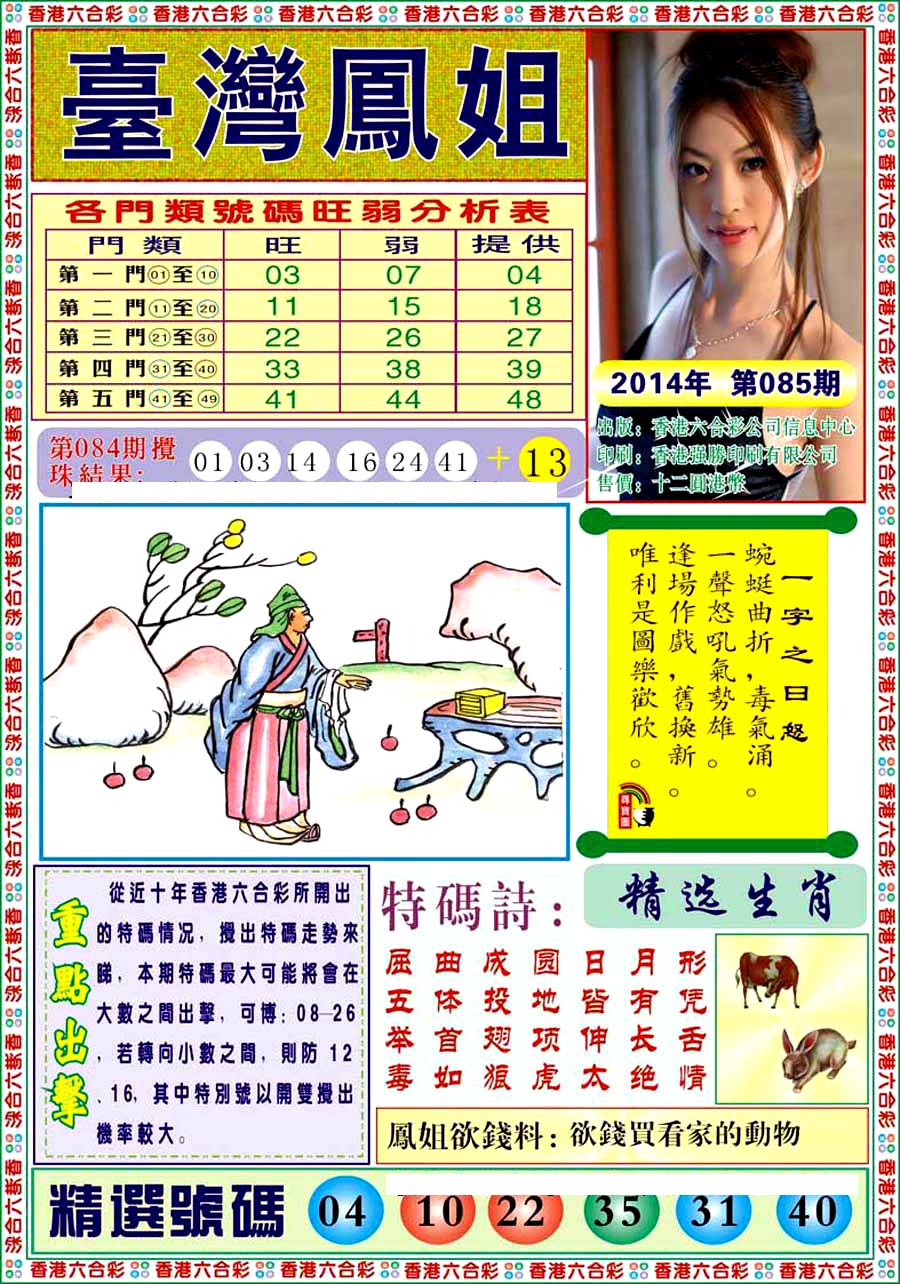 香港六合彩 香港六合彩 香港六合彩 香港六合彩 香港六合彩 香港六合彩 香港六合彩
臺灣鳳姐
各門類號碼旺弱分析表
門類 旺 弱 提供
第一門01至10 03 07 04
第二門11至20 11 15 18
第三門21至30 22 26 27
第四門31至40 33 38 39
第五門41至49 41 44 48
2014年 第085期
出版：香港六合彩公司信息中心
印刷：香港强勝印刷有限公司
售價：十二圓港幣
第084期攪
珠結果：
01 03 14 16 24 41 + 13
一字之曰怒
蜿蜓曲折，毒氣涌。
一聲怒吼氣勢雄。
逢場作戲，舊換新。
唯利是圖樂歡欣。
尋寶圖
重點出擊
從近十年香港六合彩所開出
的特碼情况，攪出特碼走勢來
睇，本期特碼最大可能將會在
大數之間出擊，可博：08—26
，若轉向小數之間，則防 12
、16，其中特別號以開雙攪出
機率較大。
特碼詩：
屈曲成圆日月形
五体投地皆有凭
举首翅项伸长舌
毒如狼虎太绝情
精选生肖
鳳姐欲錢料：欲錢買看家的動物
精選號碼 04 10 22 35 31 40
香港六合彩 香港六合彩 香港六合彩 香港六合彩 香港六合彩 香港六合彩 香港六合彩